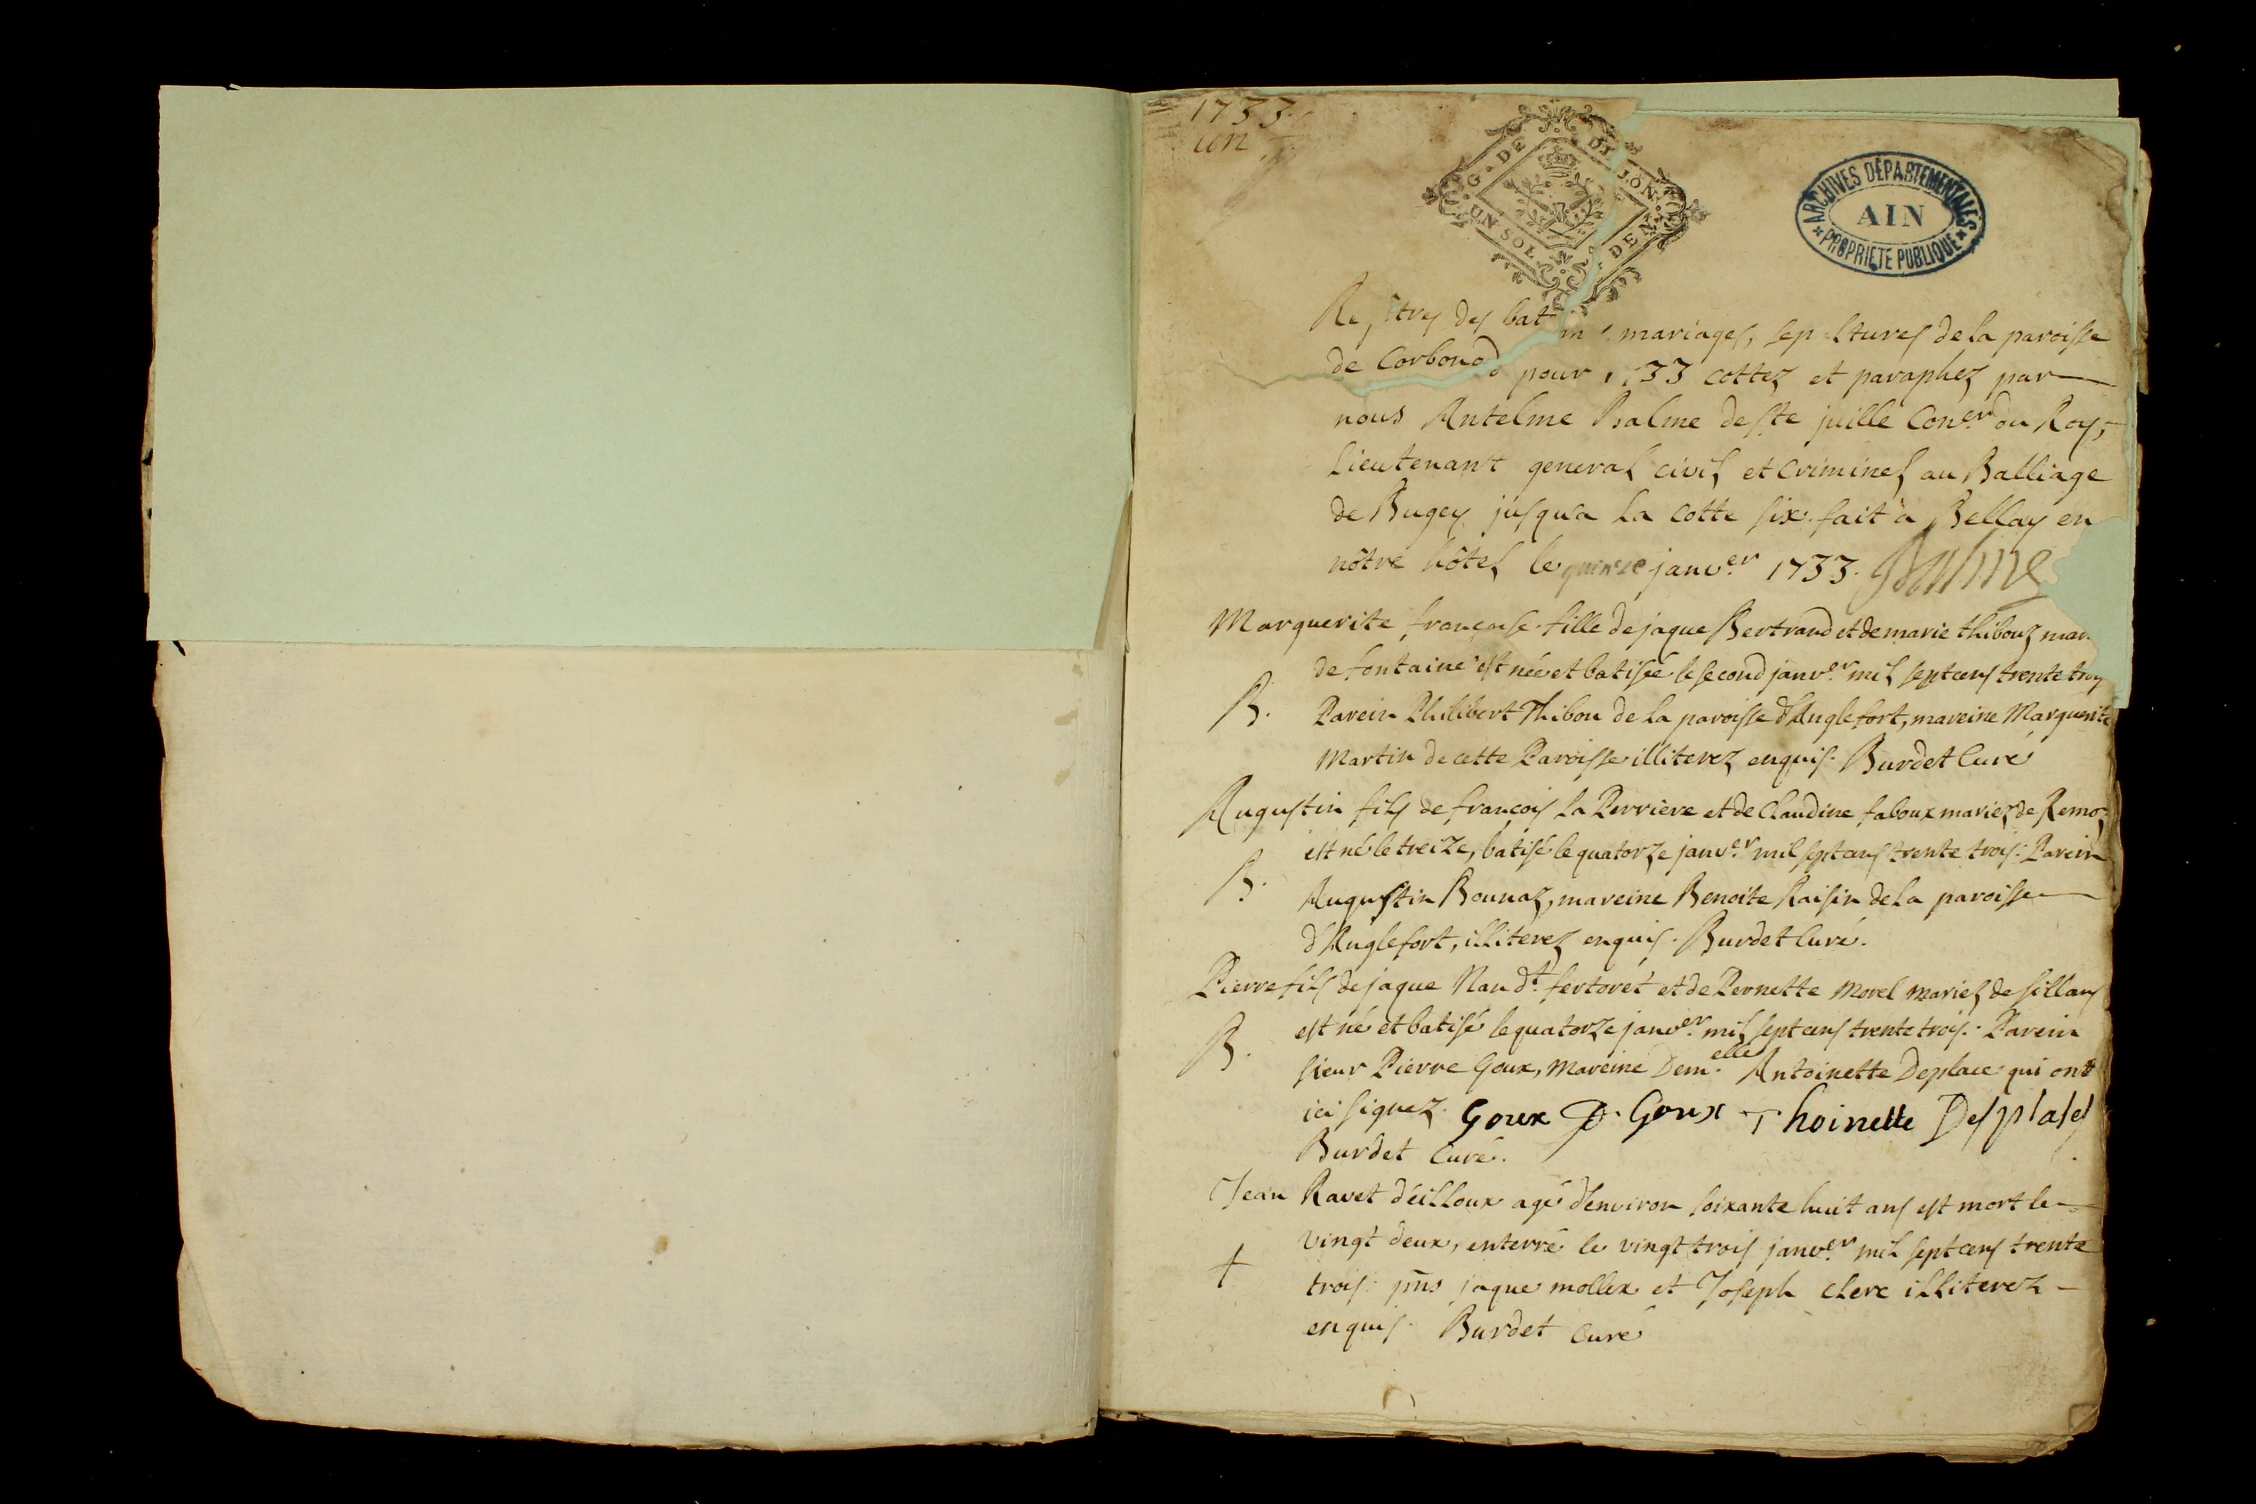 1733
G. DE DIJON
UN SOL DEN
ARCHIVES DÉPARTEMENTALES
AIN
PROPRIETE PUBLIQUE
des bat mariages, sepultures de la paroisse
de Corbonod pour 1733 cottez et paraphez par
nous Antelme Balme de Ste juille Conᵉʳ du Roy,
Lieutenant general civil et Criminel au Balliage
de Bugey jusqu'a la cotte six. fait à Bellay en
nôtre hôtel le quinze janvᵉʳ 1733. Balme
Marguerite francoise fille de jaque Bertrand et de marie thibouz
de fontaine est née et batisée le second janvᵉʳ mil sept cens trente troy
B. Parein Philibert Thibou de la paroisse d'Anglefort, mareine Marguerite
Martin de cette Paroisse illiterez enquis. Burdet Curé
Augustin fils de françois la Perriere et de Claudine faboux mariez de Remoz
est né le treize, batisé le quatorze janvᵉʳ mil sept cens trente trois. Parein
B. Augustin Bounaz, mareine Benoite Raisin de la paroisse
d'Anglefort, illiterez enquis. Burdet Curé.
Pierre fils de jaque Nan dᵗ fertoret et de Pernette Morel mariez de sillans
est né et batisé le quatorze janvᵉʳ mil sept cens trente trois. Parein
B. sieur Pierre Goux, Mareine Demᵉˡˡᵉ Antoinette Deplace qui ont
ici signez. Goux P. Goux Thoinette Desplases
Burdet Curé.
Jean Ravet d'eilloux agé d'environ soixante huit ans est mort le
vingt deux, enterré le vingt trois janvᵉʳ mil sept cens trente
+ trois. pns jaque mollex et Joseph clerc illiterez
enquis. Burdet Curé